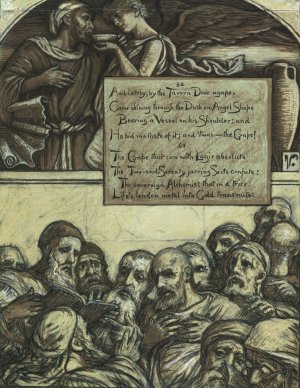 62
And lately, by the Tavern Door agape,
Came shining through the Dusk an Angel Shape
Bearing a Vessel on his Shoulder; and
He bid me taste of it; and 'twas—the Grape!
The Grape that can with Logic absolute
The Two-and-Seventy jarring Sects confute:
The sovereign Alchemist that in a trice
Life's leaden metal into Gold transmutes